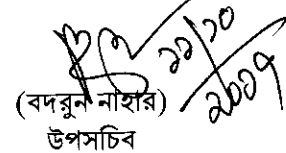 ২২/১০
২০১৭
(বদরুন নাহার)
উপসচিব